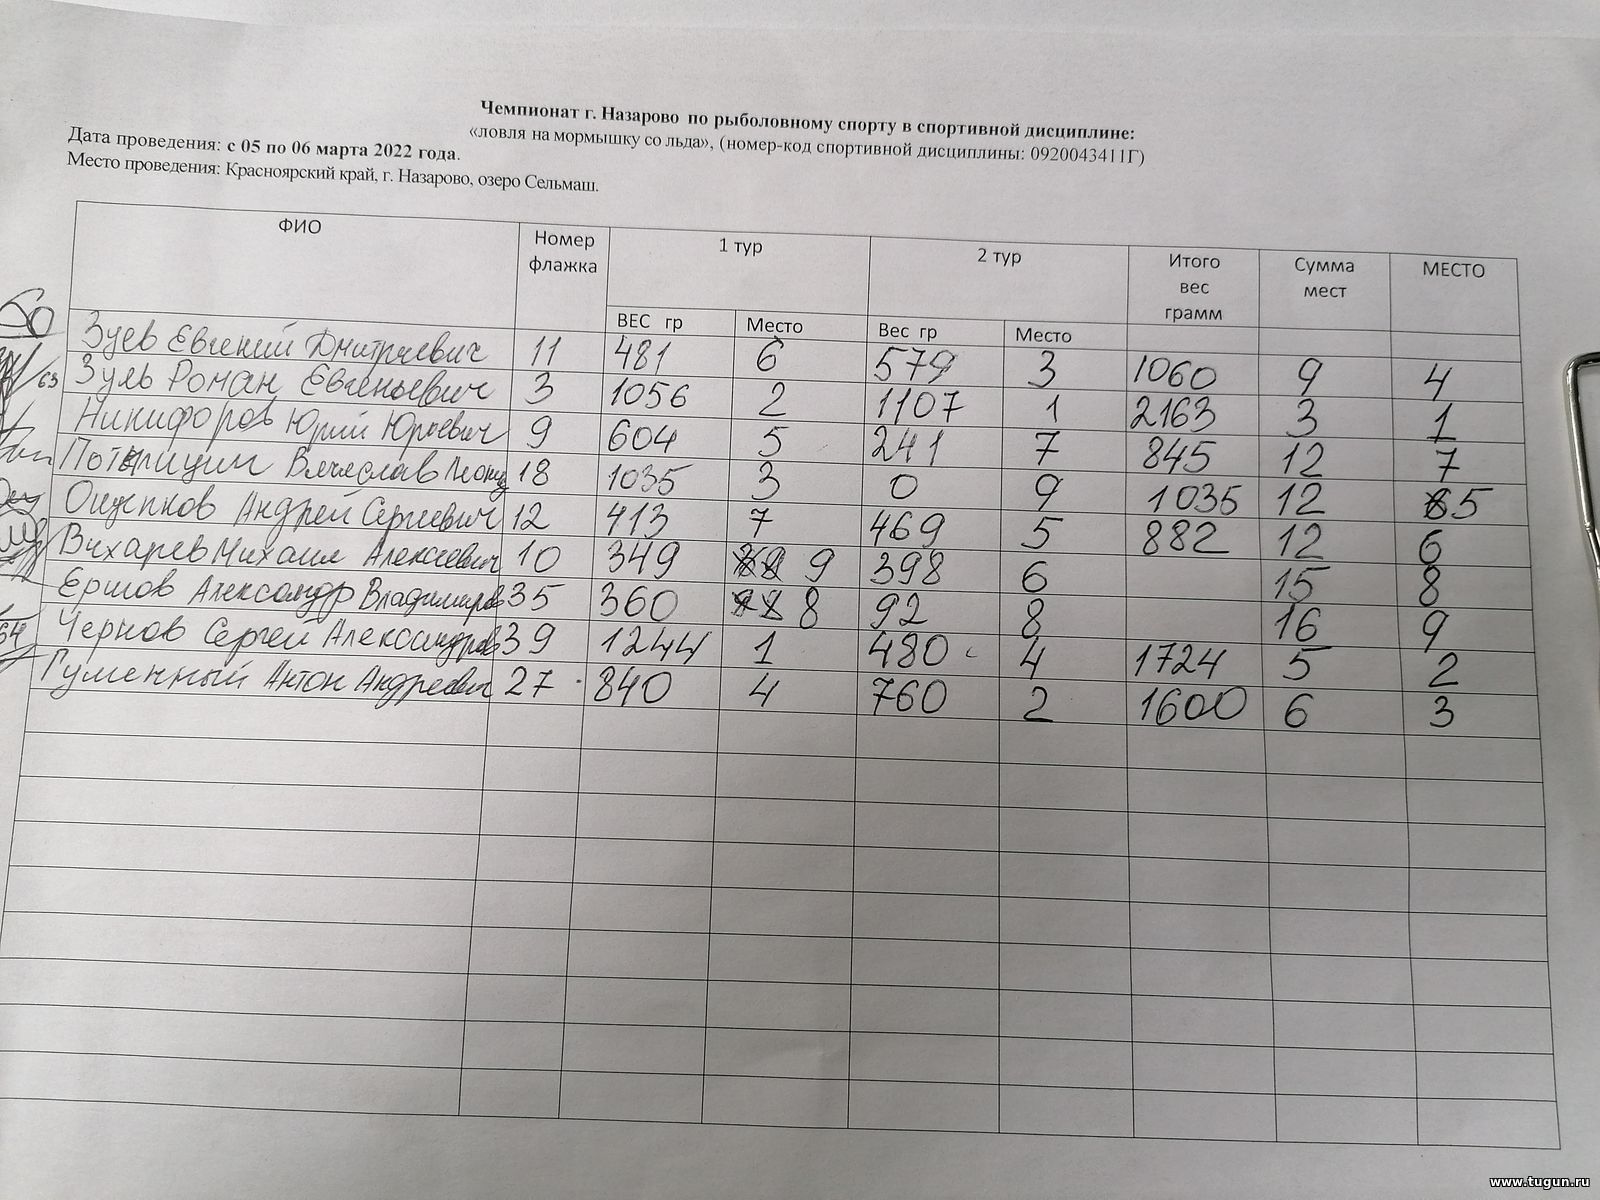 Чемпионат г. Назарово по рыболовному спорту в спортивной дисциплине:
«ловля на мормышку со льда», (номер-код спортивной дисциплины: 0920043411Г)
Дата проведения: с 05 по 06 марта 2022 года.
Место проведения: Красноярский край, г. Назарово, озеро Сельмаш.
ФИО Номер флажка 1 тур 2 тур Итого вес грамм Сумма мест МЕСТО
ВЕС гр Место Вес гр Место
Зуев Евгений Дмитриевич 11 481 6 579 3 1060 9 4
63 Зуль Роман Евгеньевич 3 1056 2 1107 1 2163 3 1
Никифоров Юрий Юрьевич 9 604 5 241 7 845 12 7
Потылицин Вячеслав 18 1035 3 0 9 1035 12 5
Ощепков Андрей Сергеевич 12 413 7 469 5 882 12 6
Вихарев Михаил Алексеевич 10 349 9 398 6 15 8
Ершов Александр Владимиров 35 360 8 92 8 16 9
Чернов Сергей Александров 39 1244 1 480 4 1724 5 2
Гуменный Антон Андреевич 27 840 4 760 2 1600 6 3
www.tugun.ru